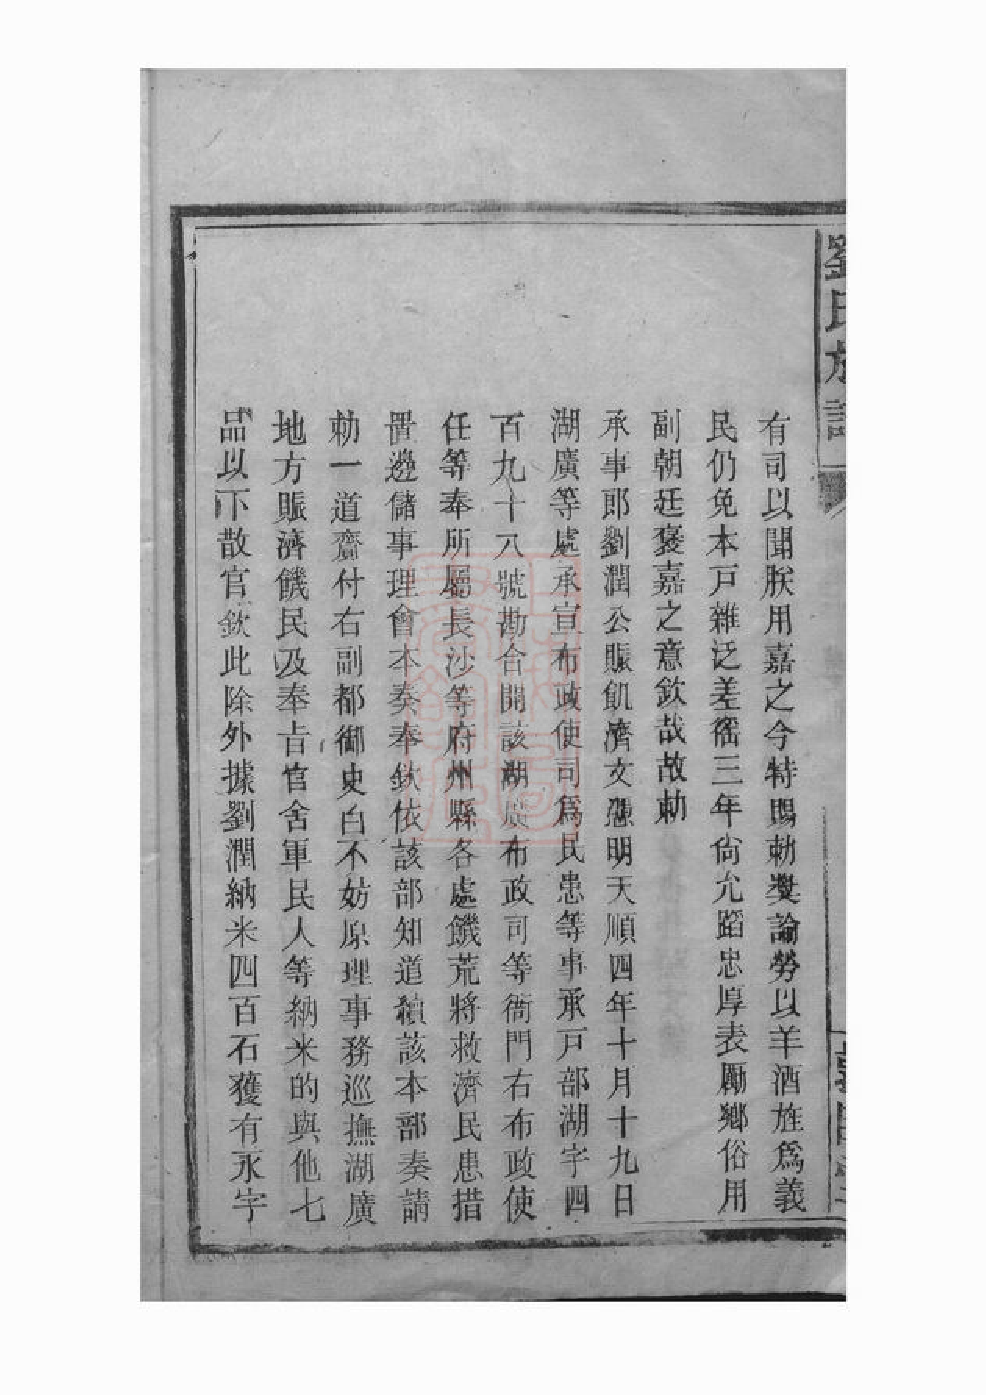 劉氏族譜
有司以聞朕用嘉之今特賜勅奬諭勞以羊酒旌爲義
民仍免本戸雜泛差徭三年尙允蹈忠厚表勵鄉俗用
副朝廷褒嘉之意欽哉故勅
承事郎劉潤公賑飢濟文憑明天順四年十月十九日
湖廣等處承宣布政使司爲民患等事承戸部湖字四
百九十八號勘合開該湖廣布政司等衙門右布政使
任等奉所屬長沙等府州縣各處饑荒將救濟民患措
置邊儲事理會本奏奉欽依該部知道續該本部奏請
勅一道齎付右副都御史白不妨原理事務巡撫湖廣
地方賑濟饑民及奉吉官舍軍民人等納米的與他七
品以下散官欽此除外據劉潤納米四百石獲有永字